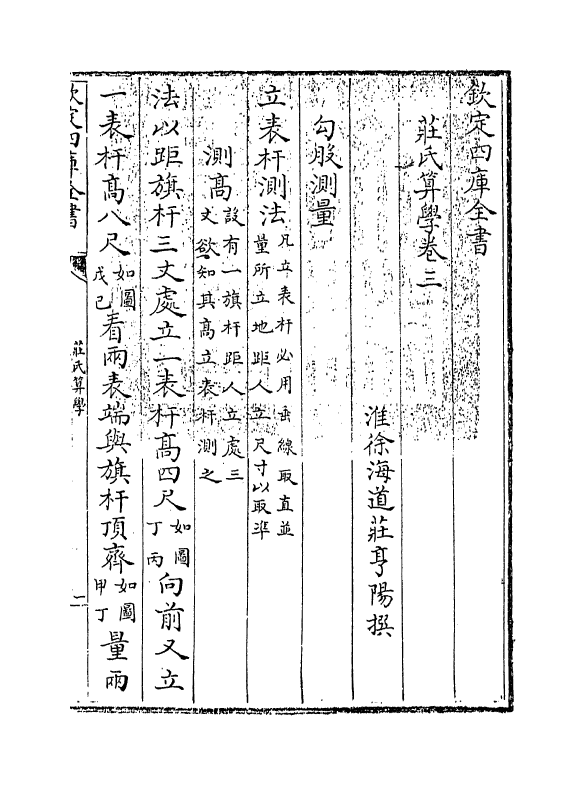 欽定四庫全書
莊氏算學卷三
淮徐海道莊亨陽撰
勾股測量
立表杆測法凡立表杆必用垂線取直並
量所立地距人立尺寸以取準
測髙設有一旗杆距人立處三
丈欲知其髙立表杆測之
法以距旗杆三丈處立一表杆髙四尺如圖
丁丙向前又立
一表杆髙八尺如圖
戊己看兩表端與旗杆頂齊如圖
甲丁量兩
欽定四庫全書
莊氏算學
一